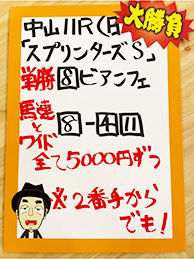 大勝負
中山11R(日)
「スプリンターズS」
単勝 8 ビアンフェ
馬連とワイド 8-4 11
全て5000円ずつ
※2番手からでも!